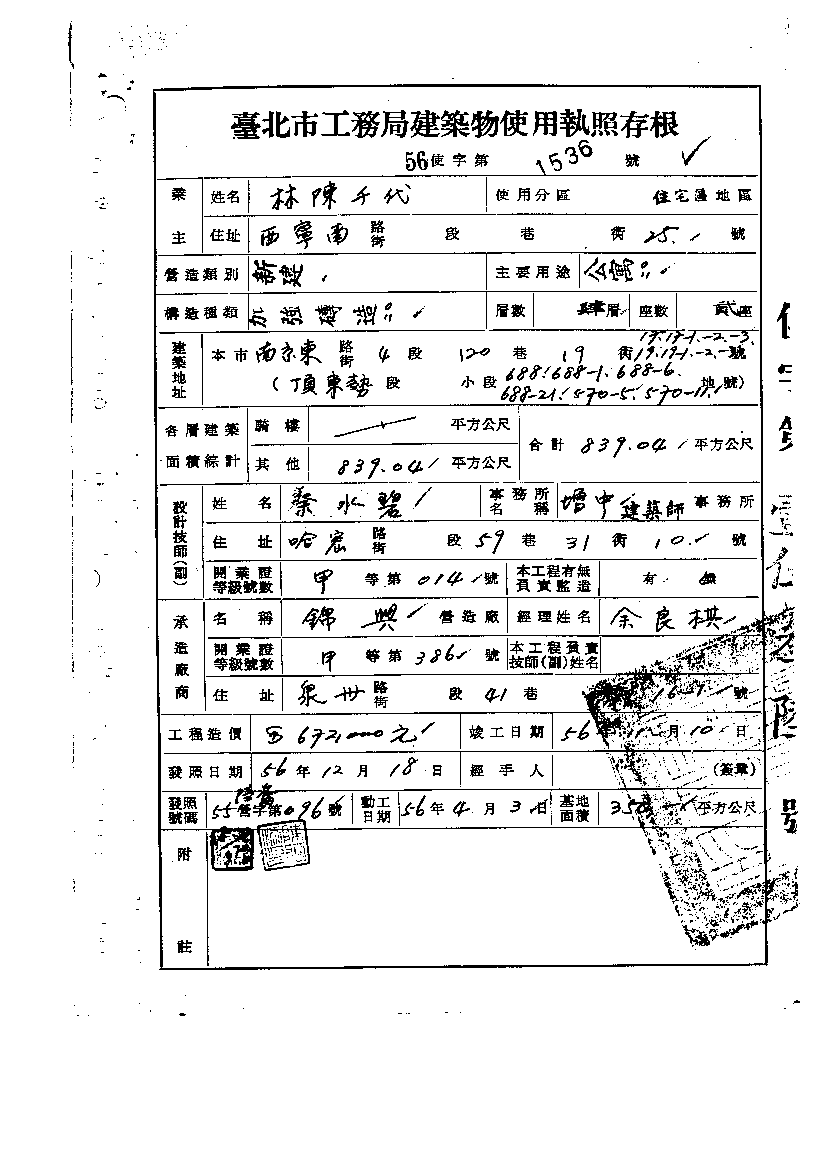 臺北市工務局建築物使用執照存根
56使字第 1536 號
業主 姓名 林陳千代 使用分區 住宅區地區
住址 西寧南 路街 段 巷 街 25 號
營造類別 新建 主要用途 公寓
構造種類 加強磚造 層數 肆層 座數 貳座
19.19-1.-2.-3.
建築地址 本市 南京東 路街 4 段 120 巷 19 街 19.19-1.-2.- 號
(頂東勢 段 小段 688.688-1.688-6. 地號)
688-21.570-5.570-11.
各層建築面積綜計 騎樓 平方公尺 合計 839.04 平方公尺
其他 839.04 平方公尺
設計技師(副) 姓名 蔡水碧 事務所名稱 增中建築師事務所
住址 哈密 路街 段 59 巷 31 街 10 號
開業證等級號數 甲 等第 014 號 本工程有無負責監造 有
承造廠商 名稱 錦興 營造廠 經理姓名 余良棋
開業證等級號數 甲 等第 386 號 本工程負責技師(副)姓名
住址 泉州 路街 段 41 巷 號
工程造價 672,000元 竣工日期 56 年 月 10 日
發照日期 56 年 12 月 18 日 經手人 (簽章)
發照號碼 55 營字第 096 號 動工日期 56 年 4 月 3 日 基地面積 平方公尺
附註
號